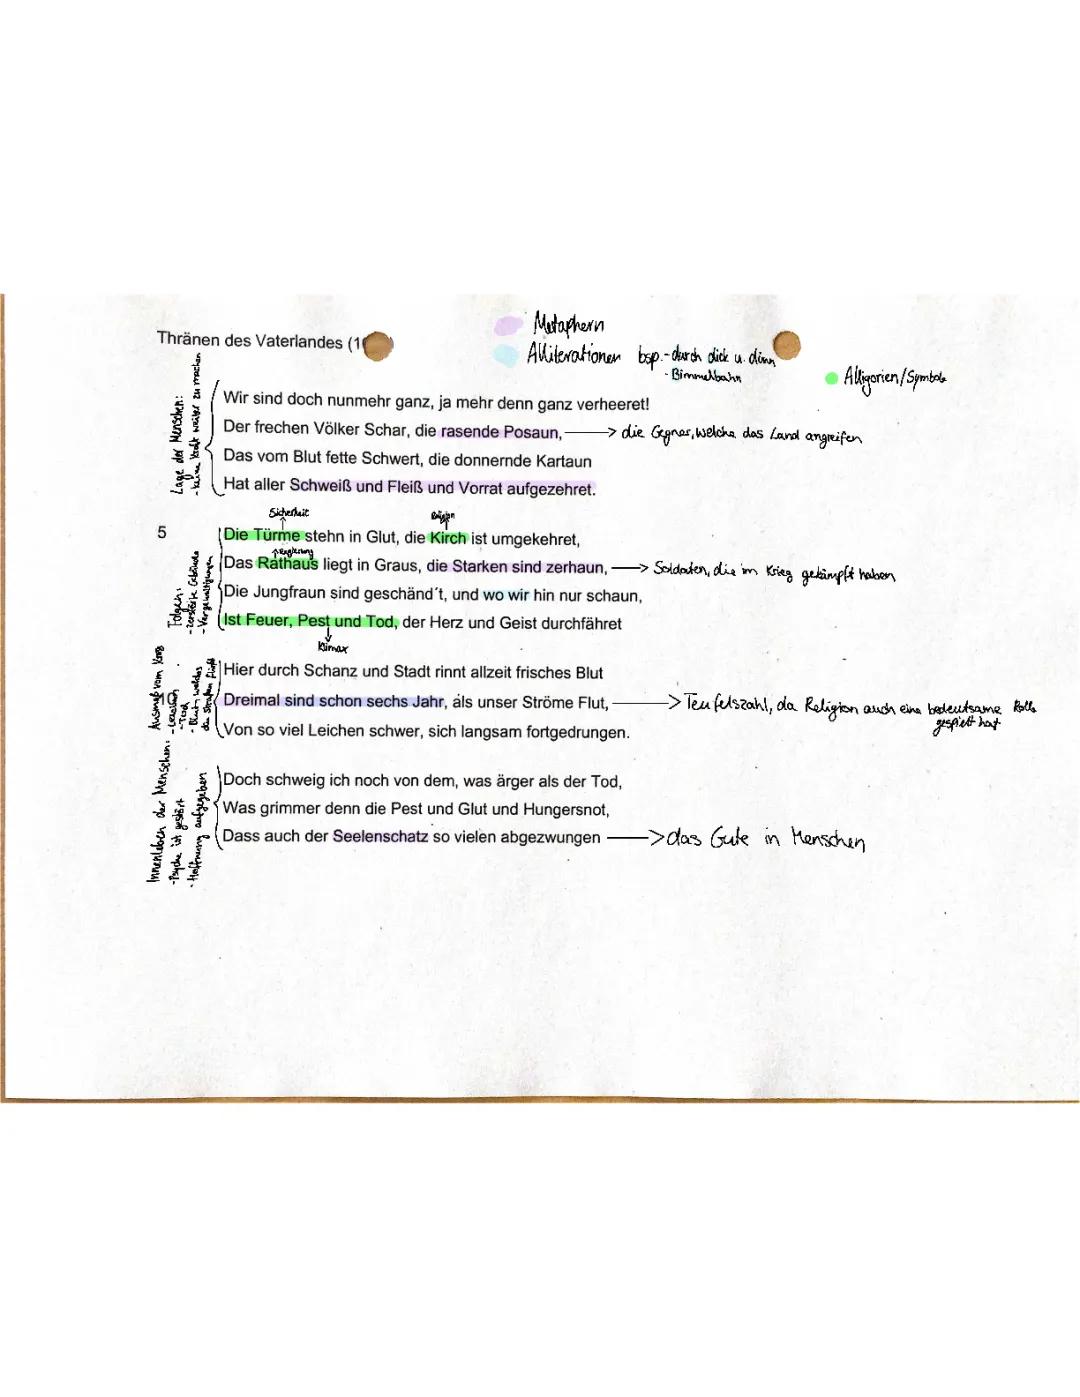 Metaphern
Thränen des Vaterlandes (1
Alliterationen bsp.-durch dick u. dünn
- Bimmelbahn
Alligorien/Symbole
Lage der Menschen:
- keine Kraft weiter zu machen
Wir sind doch nunmehr ganz, ja mehr denn ganz verheeret!
Der frechen Völker Schar, die rasende Posaun, → die Gegner, welche das Land angreifen
Das vom Blut fette Schwert, die donnernde Kartaun
Hat aller Schweiß und Fleiß und Vorrat aufgezehret.
Sicherheit
Religion
5
Folgen:
- zerstörte Gebäude
- Vergewaltigungen
Die Türme stehn in Glut, die Kirch ist umgekehret,
Regierung
Das Rathaus liegt in Graus, die Starken sind zerhaun, → Soldaten, die im Krieg gekämpft haben
Die Jungfraun sind geschänd´t, und wo wir hin nur schaun,
Ist Feuer, Pest und Tod, der Herz und Geist durchfähret
Klimax
Ausmaß vom Krieg
- Leichen
- Tod
- Blut, welches
den Straßen fließt
10
Hier durch Schanz und Stadt rinnt allzeit frisches Blut
Dreimal sind schon sechs Jahr, als unser Ströme Flut, → Teufelszahl, da Religion auch eine bedeutsame Rolle
gespielt hat
Von so viel Leichen schwer, sich langsam fortgedrungen.
Innenleben der Menschen:
- Psyche ist gestört
- Hoffnung aufgegeben
Doch schweig ich noch von dem, was ärger als der Tod,
Was grimmer denn die Pest und Glut und Hungersnot,
Dass auch der Seelenschatz so vielen abgezwungen → das Gute in Menschen